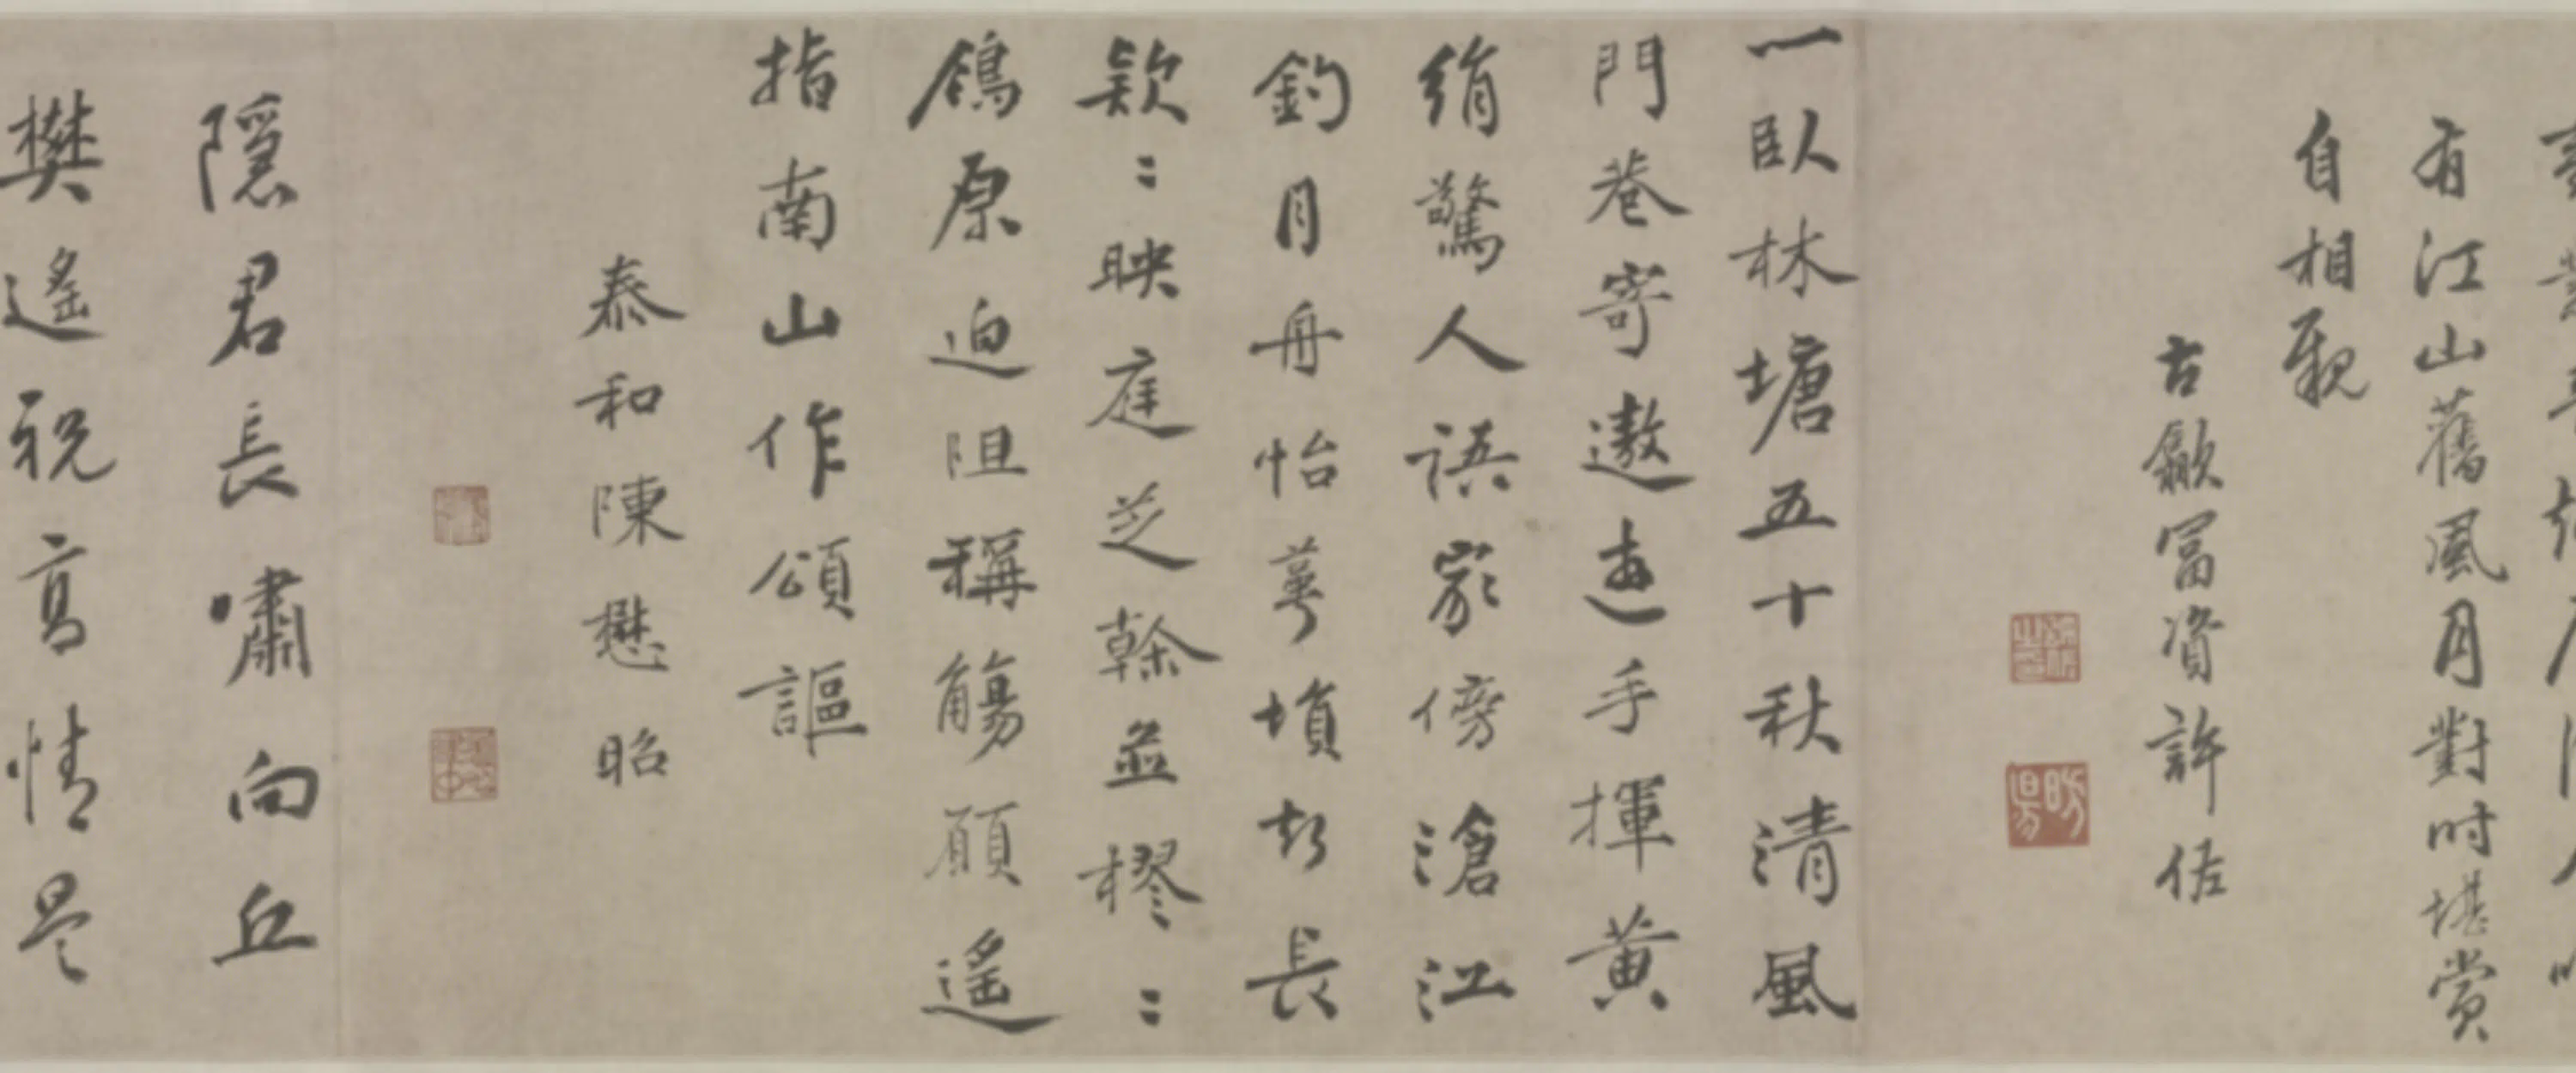 有江山舊風月對时堪賞
自相親
古歙冨資許佸
一臥林塘五十秋清風
門巷寄遨遊手揮黄
絹驚人語家傍滄江
釣月舟怡萼塤

長
欵〻映庭芝榦並樛〻
鴒原迫阻稱觴願遥
指南山作頌謳
泰和陳懋昭
隱君長嘯向丘
樊遙祝高情是